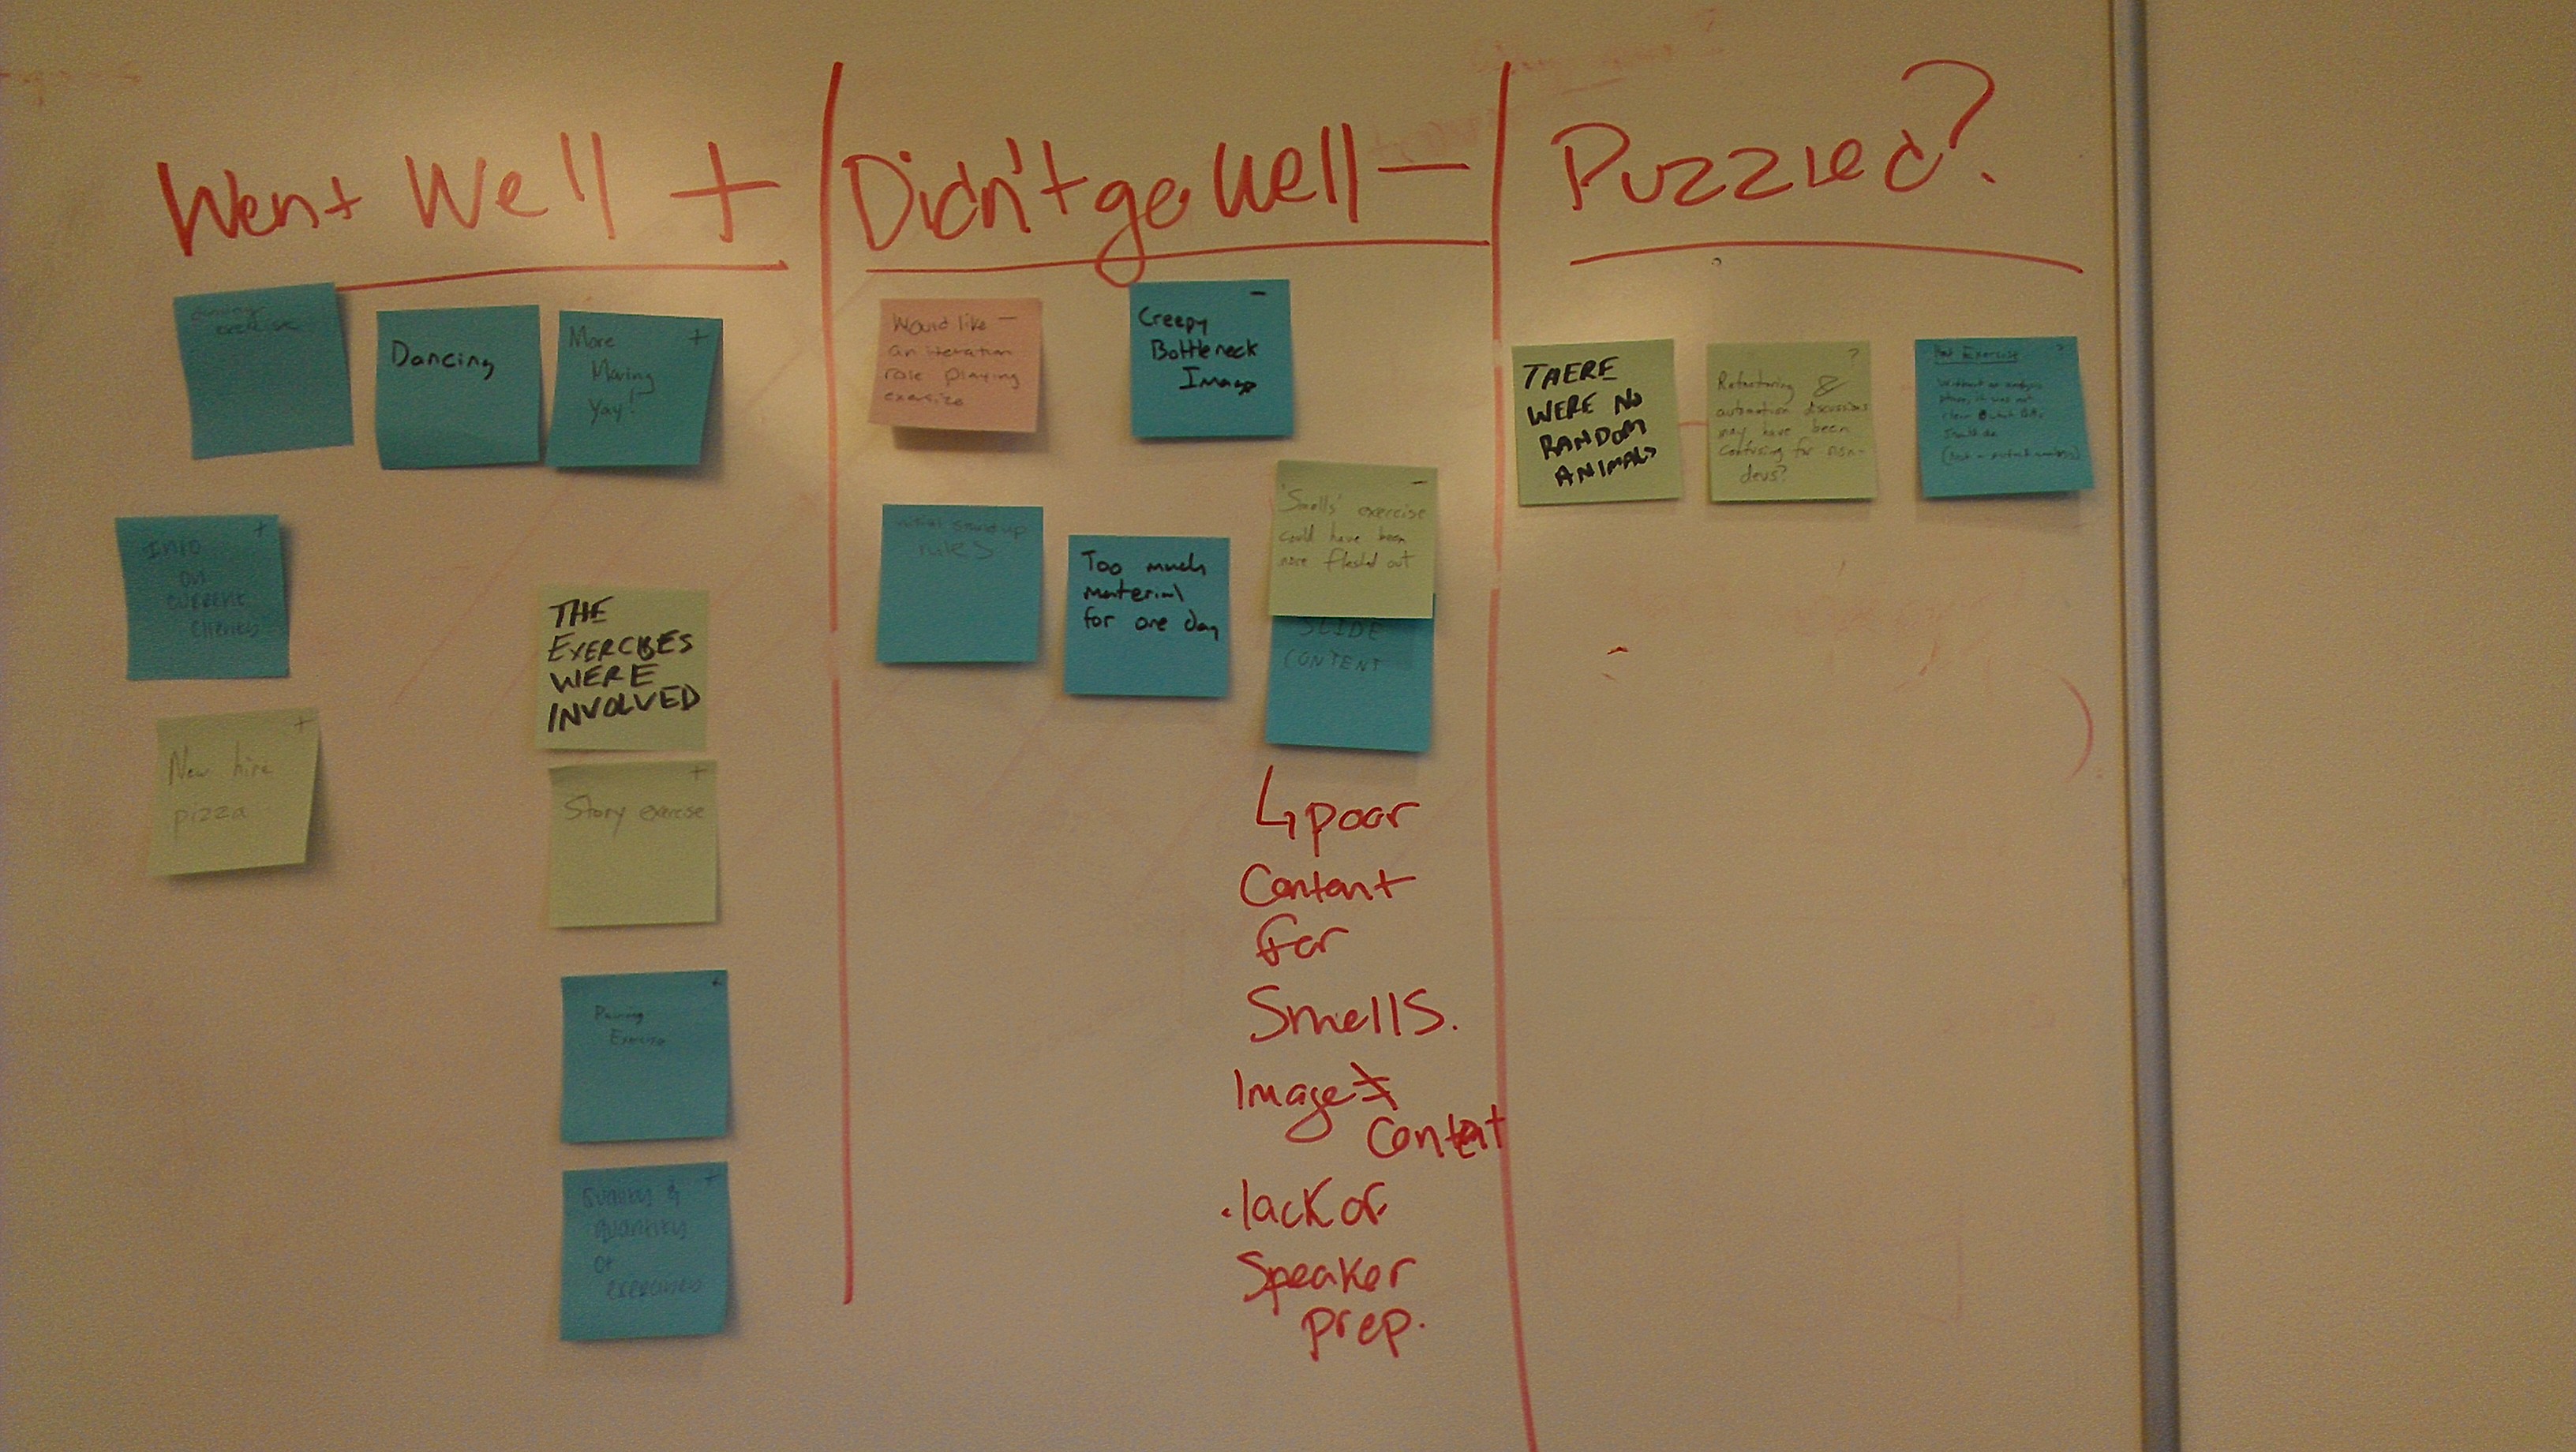 Went Well +
Didn't go Well —
Puzzled?
exercise
Dancing
More +
Moving
Yay!
Info +
on
current
clients
New hire +
pizza
THE
EXERCISES
WERE
INVOLVED
+
Story exercise
Pairing +
Exercise
Quality & +
quantity
of
exercises
Would like —
an iteration
role playing
exercise
Creepy —
Bottleneck
Image
initial standup
rules
Too much
material
for one day
—
'Smells' exercise
could have been
more fleshed out
SLIDE
CONTENT
↳ poor
Content
for
Smells.
Image ≠
Content
. lack of
Speaker
prep.
THERE
WERE NO
RANDOM
ANIMALS
?
Refactoring &
automation discussions
may have been
confusing for non-
devs?
Exercise ?
Without an analysis
phase, it was not
clear what BAs
should do